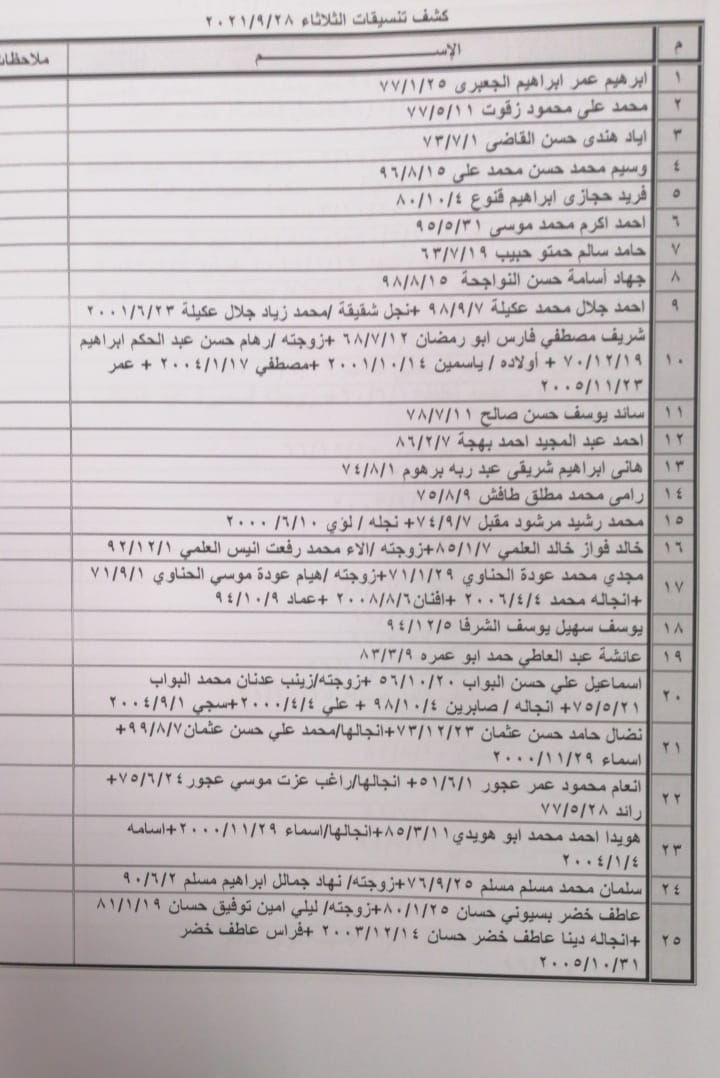 كشف تنسيقات الثلاثاء ٢٠٢١/٩/٢٨
م الإســــــم ملاحظات
١ ابرهيم عمر ابراهيم الجعبرى ٧٧/١/٢٥
٢ محمد على محمود زقوت ٧٧/٥/١١
٣ اياد هندى حسن القاضى ٧٣/٧/١
٤ وسيم محمد حسن محمد على ٩٦/٨/١٥
٥ فريد حجازى ابراهيم قنوع ٨٠/١٠/٤
٦ احمد اكرم محمد موسى ٩٥/٥/٣١
٧ حامد سالم حمتو حبيب ٦٣/٧/١٩
٨ جهاد أسامة حسن النواجحة ٩٨/٨/١٥
٩ احمد جلال محمد عكيلة ٩٨/٩/٧ +نجل شقيقة /محمد زياد جلال عكيلة ٢٠٠١/٦/٢٣
شريف مصطفي فارس ابو رمضان ٦٨/٧/١٢ +زوجته /رهام حسن عبد الحكم ابراهيم
١٠ ٧٠/١٢/١٩ + أولاده / ياسمين ٢٠٠١/١٠/١٤ +مصطفي ٢٠٠٤/١/١٧ + عمر
٢٠٠٥/١١/٢٣
١١ سائد يوسف حسن صالح ٧٨/٧/١١
١٢ احمد عبد المجيد احمد بهجة ٨٦/٢/٧
١٣ هانى ابراهيم شريقى عبد ربه برهوم ٧٤/٨/١
١٤ رامى محمد مطلق طافش ٧٥/٨/٩
١٥ محمد رشيد مرشود مقبل ٧٤/٩/٧+ نجله / لؤي ٢٠٠٠/٦/١٠
١٦ خالد فواز خالد العلمي ٨٥/١/٧+زوجته /الاء محمد رفعت انيس العلمي ٩٢/١٢/١
١٧ مجدي محمد عودة الحناوي ٧١/١/٢٩+زوجته /هيام عودة موسي الحناوي ٧١/٩/١
+انجاله محمد ٢٠٠٦/٤/٤ +افنان٢٠٠٨/٨/٦ +عماد ٩٤/١٠/٩
١٨ يوسف سهيل يوسف الشرفا ٩٤/١٢/٥
١٩ عائشة عبد العاطي حمد ابو عمره ٨٣/٣/٩
٢٠ اسماعيل علي حسن البواب ٥٦/١٠/٢٠ +زوجته/زينب عدنان محمد البواب
٧٥/٥/٢١+ انجاله / صابرين ٩٨/١٠/٤ + علي ٢٠٠٠/٤/٤+سجي ٢٠٠٤/٩/١
٢١ نضال حامد حسن عثمان ٧٣/١٢/٢٣+انجالها/محمد علي حسن عثمان٩٩/٨/٧+
اسماء ٢٠٠٠/١١/٢٩
٢٢ انعام محمود عمر عجور ٥١/٦/١+ انجالها/راغب عزت موسي عجور٧٥/٦/٢٤+
رائد ٧٧/٥/٢٨
٢٣ هويدا احمد محمد ابو هويدي٨٥/٣/١١+انجالها/اسماء ٢٠٠٠/١١/٢٩+اسامه
٢٠٠٤/١/٤
٢٤ سلمان محمد مسلم مسلم ٧٦/٩/٢٥+زوجته/ نهاد جمالل ابراهيم مسلم ٩٠/٦/٢
عاطف خضر بسيوني حسان ٨٠/١/٢٥+زوجته/ ليلي امين توفيق حسان ٨١/١/١٩
٢٥ +انجاله دينا عاطف خضر حسان ٢٠٠٣/١٢/١٤ +فراس عاطف خضر
٢٠٠٥/١٠/٣١